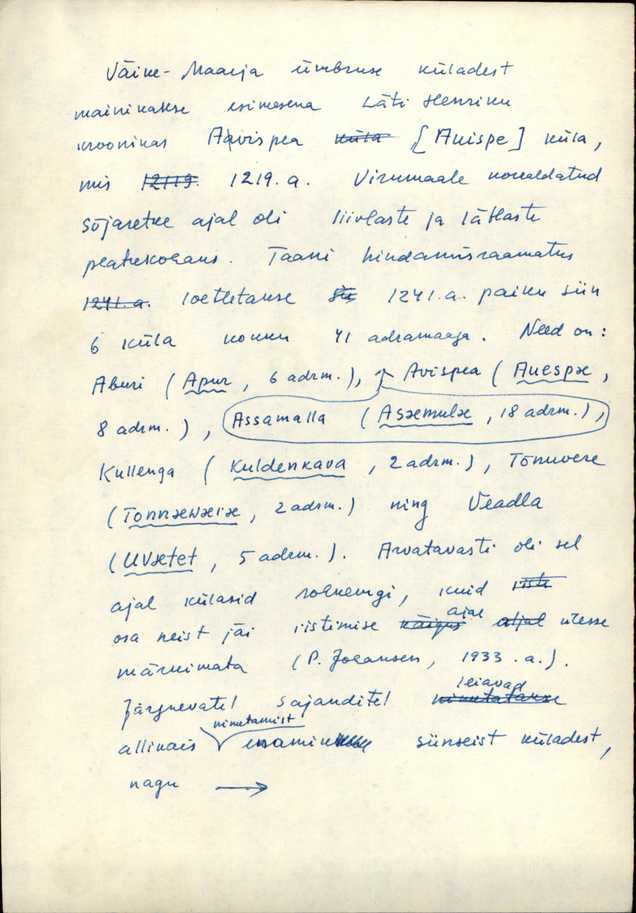 Väike-Maarja ümbruse küladest
mainitakse esimesena Läti Henriku
kroonikas Aavispea küla [Auispe] küla,
mis 12119. 1219.a. Virumaale korraldatud
sõjaretke ajal oli liivlaste ja lätlaste
peatuskohaks. Taani hindamisraamatus
1241.a. loetletakse sii 1241.a. paiku siin
6 küla kokku 41 adramaaga. Need on:
Aburi (Apur, 6 adrm.), Avispea (Auespæ,
8 adrm.), Assamalla (Asæmulæ, 18 adrm.),
Kullenga (Kuldenkava, 2 adrm.), Tõnuvere
(Tonnæwæiæ, 2 adrm.) ning Veadla
(Uvætet, 5 adrm.). Arvatavasti oli sel
ajal külasid rohkemgi, kuid
osa neist jäi ristimise käigus ajal aljal ülesse
märkimata (P. Johansen, 1933.a.).
Järgnevatel sajanditel nimetatakse leiavad
allikais nimetamist enamik siinseist küladest,
nagu →